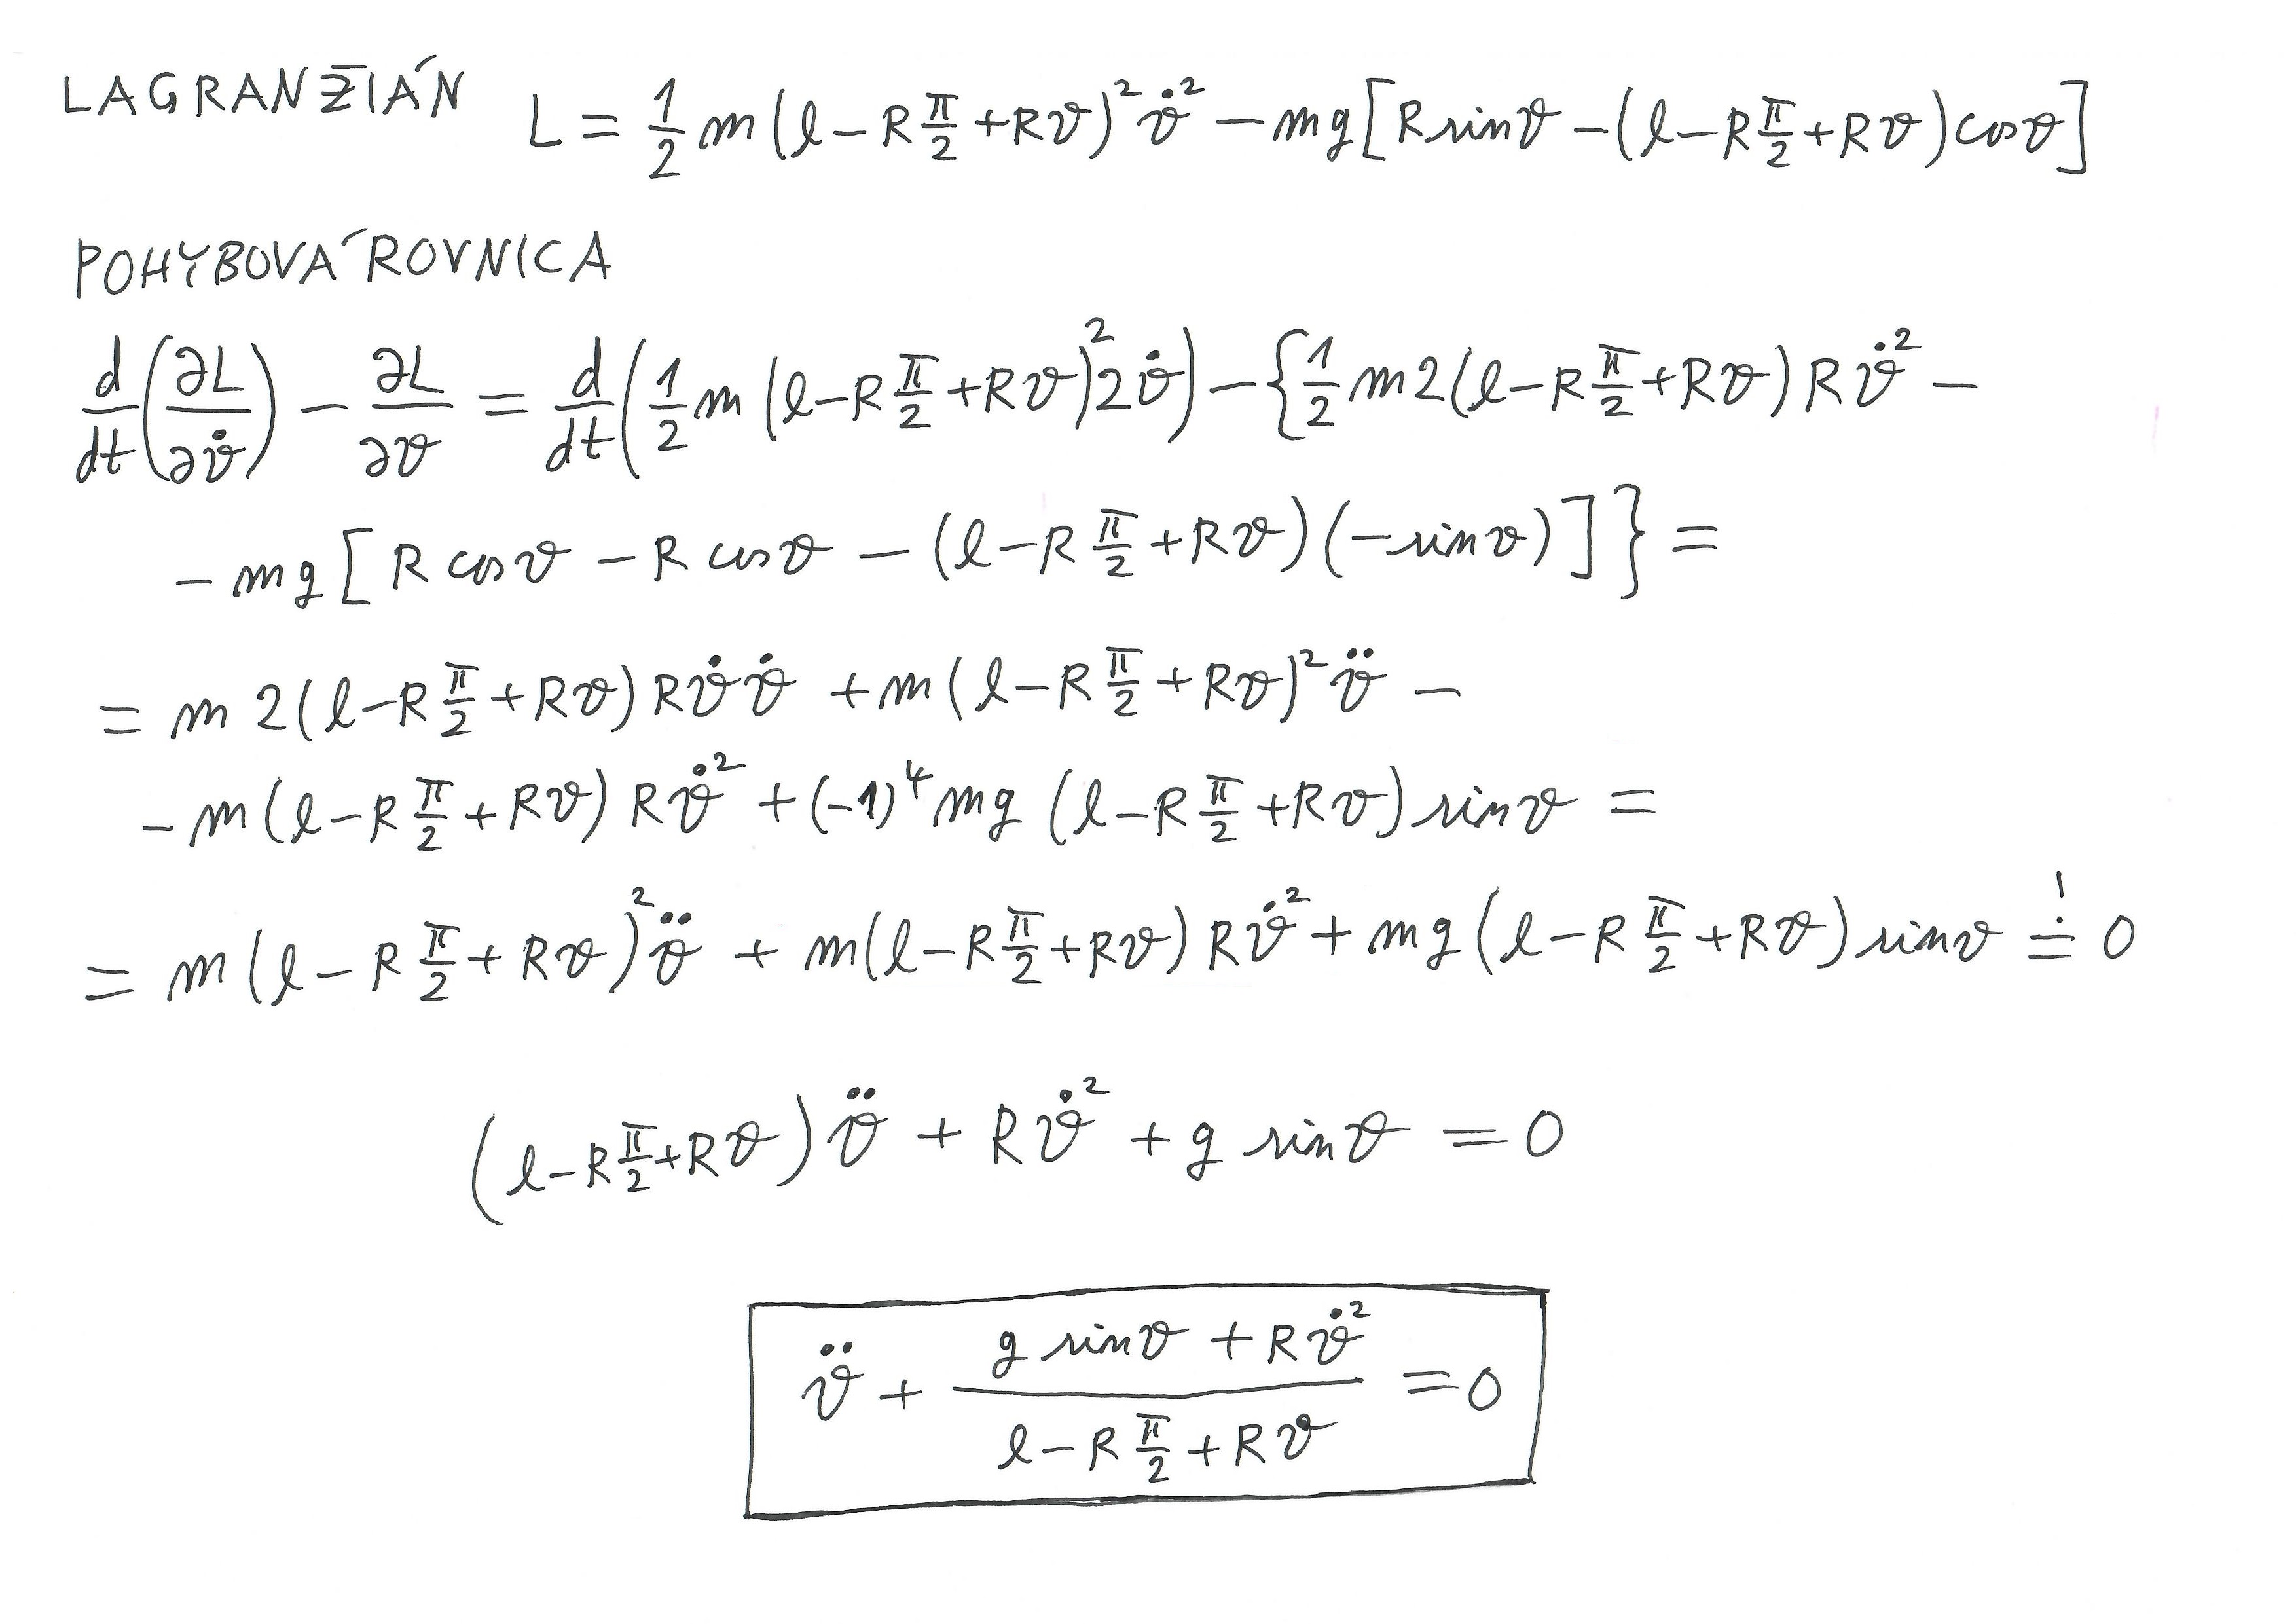 LAGRANŽIÁN L = \frac{1}{2} m (l - R\frac{π}{2} + Rϑ)² ϑ̇² - mg[R sinϑ - (l - R\frac{π}{2} + Rϑ) cosϑ]
POHYBOVÁ ROVNICA
\frac{d}{dt}(\frac{∂L}{∂ϑ̇}) - \frac{∂L}{∂ϑ} = \frac{d}{dt}(\frac{1}{2} m (l - R\frac{π}{2} + Rϑ)² 2ϑ̇) - {\frac{1}{2} m 2(l - R\frac{π}{2} + Rϑ) R ϑ̇² -
- mg [R cosϑ - R cosϑ - (l - R\frac{π}{2} + Rϑ)(-sinϑ)]} =
= m 2(l - R\frac{π}{2} + Rϑ) Rϑ̇ϑ̇ + m(l - R\frac{π}{2} + Rϑ)² ϑ̈ -
- m(l - R\frac{π}{2} + Rϑ) Rϑ̇² + (-1)⁴ mg (l - R\frac{π}{2} + Rϑ) sinϑ =
= m(l - R\frac{π}{2} + Rϑ)² ϑ̈ + m(l - R\frac{π}{2} + Rϑ) Rϑ̇² + mg(l - R\frac{π}{2} + Rϑ) sinϑ \overset{!}{=} 0
(l - R\frac{π}{2} + Rϑ) ϑ̈ + Rϑ̇² + g sinϑ = 0
ϑ̈ + \frac{g sinϑ + Rϑ̇²}{l - R\frac{π}{2} + Rϑ} = 0